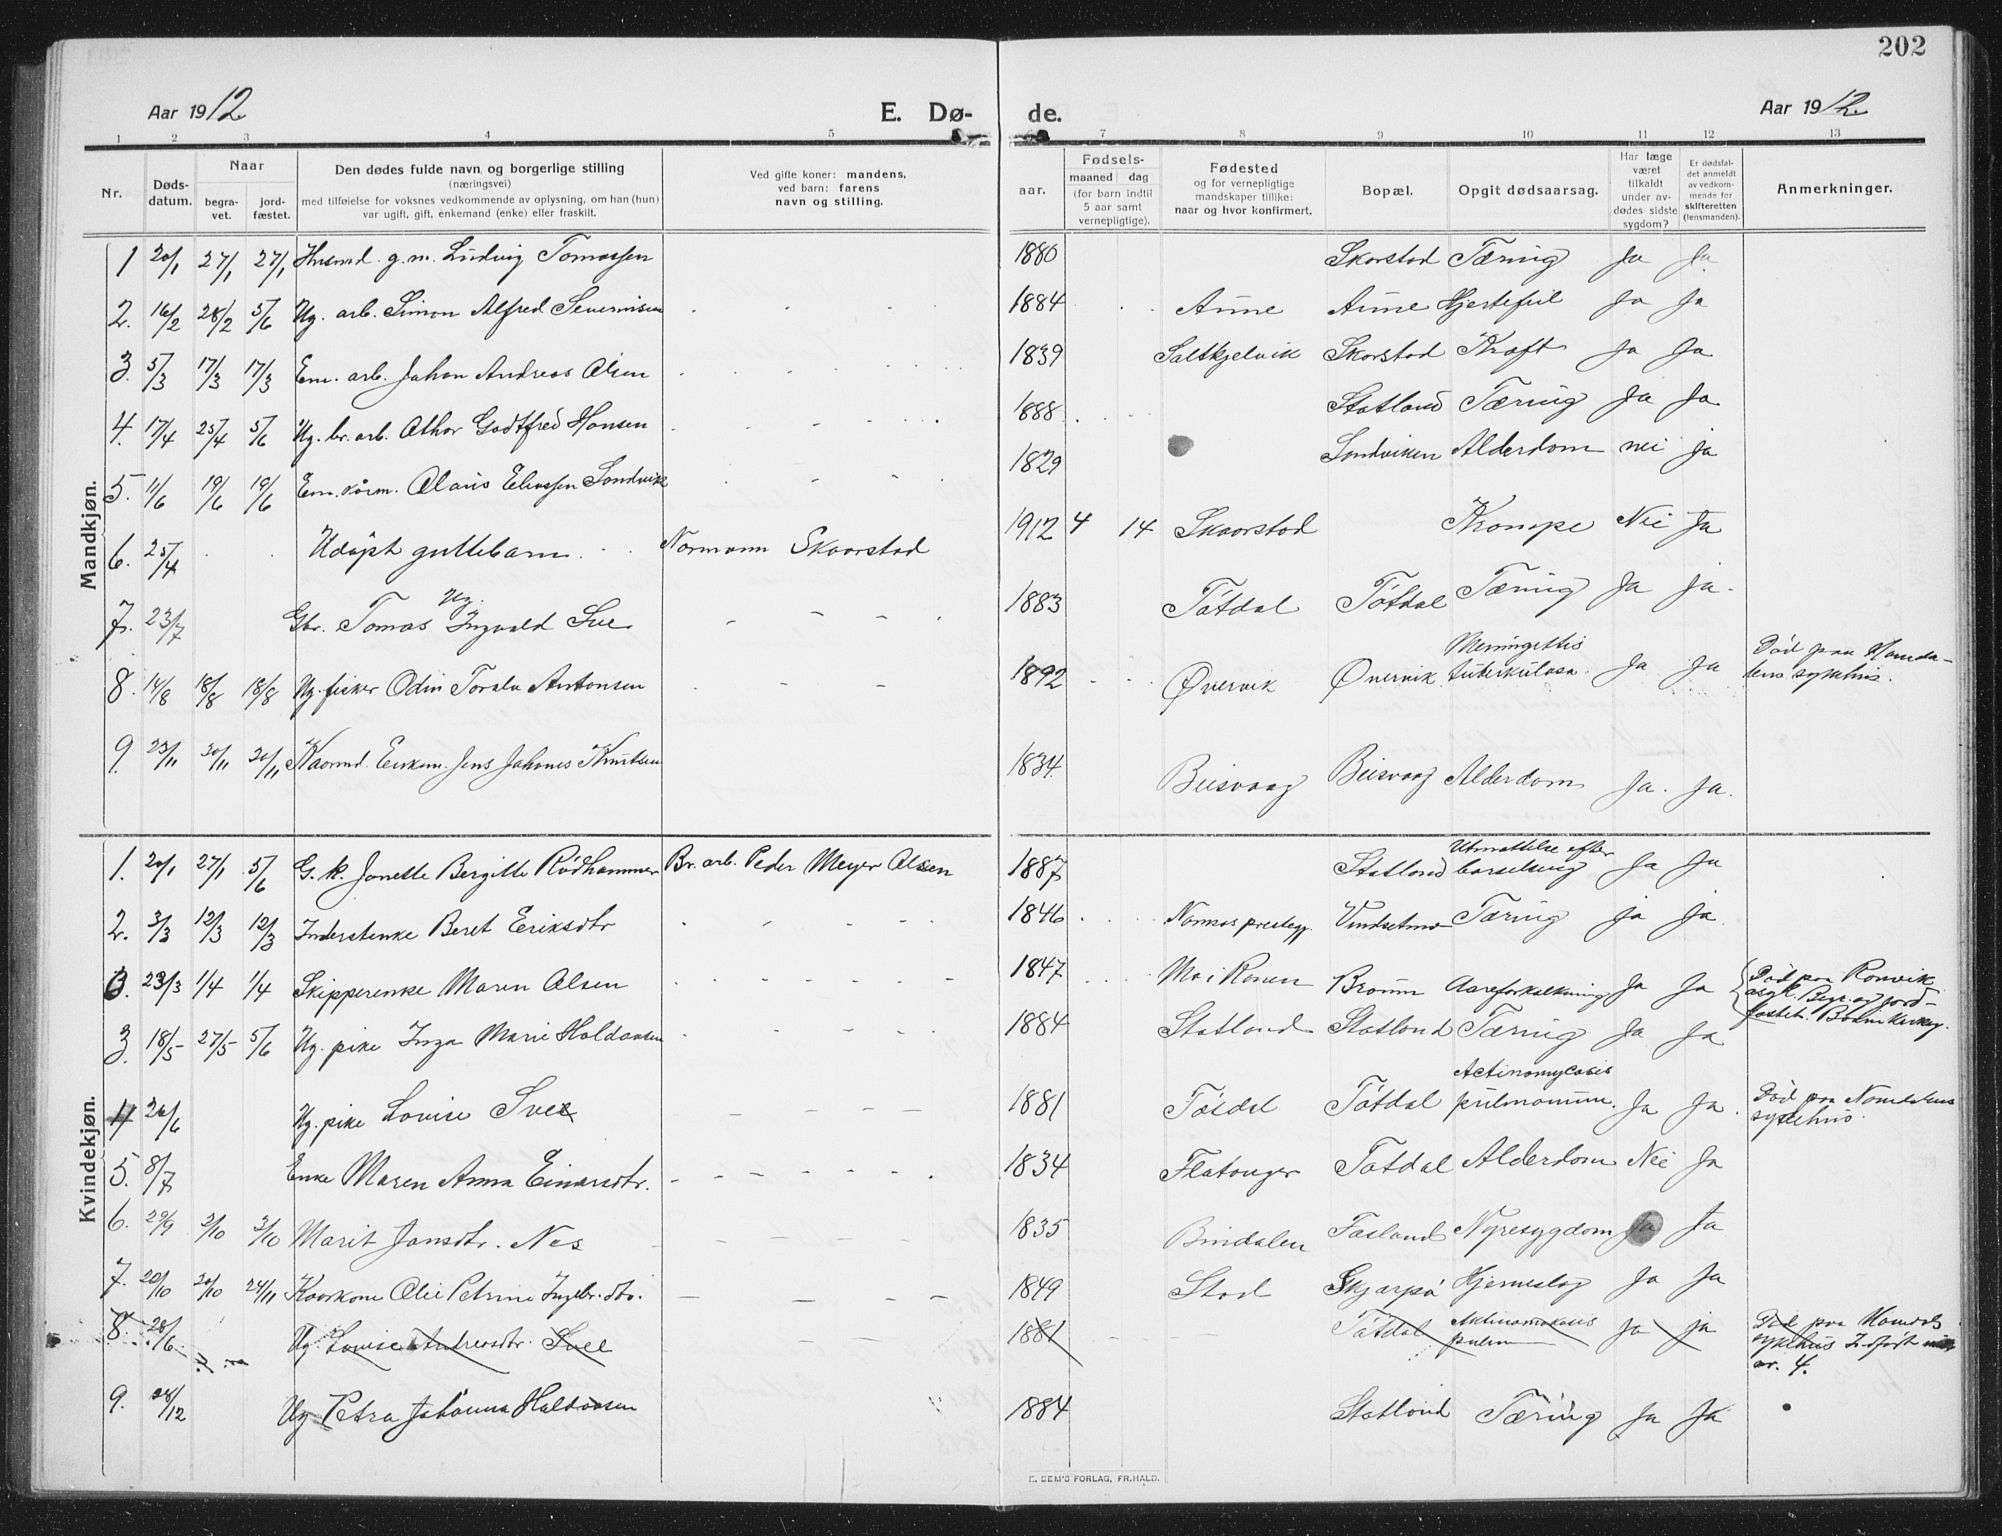 202
Aar 1912 E. Dø- de. Aar 1912.
1 2 3 4 5 7 8 9 10 11 12 13
Nr. Døds-datum. Naar begra-vet. jord-fæstet. Den dødes fulde navn og borgerlige stilling (næringsvei) med tilføielse for voksnes vedkommende av oplysning, om han (hun) var ugift, gift, enkemand (enke) eller fraskilt. Ved gifte koner: mandens, ved barn: farens navn og stilling. aar. Fødsels- maaned dag (for barn indtil 5 aar samt vernepligtige). Fødested og for vernepligtige mandskaper tillike: naar og hvor konfirmert. Bopæl. Opgit dødsaarsag. Har læge været tilkaldt under av-dødes sidste sygdom? Er dødsfal-det anmeldt av vedkom-mende for skifteretten (lensmanden). Anmerkninger.
Mandkjøn.
1 20/1 27/1 27/1 Husmd. g.m. Ludvig Tomassen 1880 Skorstad Tæring Ja Ja
2. 16/2 28/2 5/6 Ug. arb. Simon Alfred Severinsen 1884 Aune Aune Hjertefeil Ja Ja
3. 5/3 17/3 17/3 Em. arb. Johan Andreas Olsen 1839 Saltkjelvik Skorstad Kræft Ja Ja
4. 17/4 25/4 5/6 Ug. br. arb. Athor Godtfred Hansen 1888 Statland Tæring Ja Ja
5. 11/6 19/6 19/6 Em. kårm. Olaus Eliassen Sandvik 1829 Sandviken Alderdom nei ja
6. 25/4 Udøpt guttebarn Normann Skaarstad 1912 4 14 Skaarstad Krampe Nei Ja
7. 23/7 Gbr. Tomas Ug. Ingvald Sve 1883 Tötdal Tötdal Tæring Ja ja
8. 14/8 18/8 18/8 Ug. fisker Odin Toralv Antonsen 1892 Øvervik Øvervik Meningettis tuberkulosa. Ja Ja Død paa Namda-lens sykehus.
9. 23/11 30/11 30/11 Kaarmd. Enkem. Jens Johanes Knutsen 1834 Beisvaag Beisvaag Alderdom Ja. Ja.
Kvindekjøn.
1. 20/1 27/1 5/6 G. k. Jonette Bergitte Rødhammer Br. arb. Peder Meyer Olsen 1887 Statland Utmattelse efter barselseng Ja Ja
2. 3/3 12/3 12/3 Inderstenke Beret Eriksdtr 1846 Namsos prestegj. Vindsetmo Tæring Ja Ja
3. 23/3 1/4 1/4 Skipperenke Maren Olsen 1847 Mo i Ranen Braunn Aareforkalkning Ja Ja Død paa Rønvik asyl. Begr. og jord-fæstet. Bodin Kirkeg.
3. 18/5 27/5 5/6 Ug. pike Inga Marie Haldorsen 1884 Statland Statland Tæring Ja Ja
4 26/6 Ug. pike Lovise Svee 1881 Tötdal Tötdal Actinomycosis pulmonum. Ja Ja. Død paa Namdalens sykehus.
5. 8/7 Enke Maren Anna Einarsdtr. 1834 Flatanger Tötdal Alderdom Nei Ja
6. 29/9 3/10 3/10 Marit Jansdtr. Nes 1835 Bindalen Fasland Nyresygdom Ja Ja
7. 20/10 30/10 24/11 Kaarkone Olie Petrine Ingebr.dtr. 1849 Stod Skjarpö Hjerneslag Ja Ja
8. 26/6 Ug. Lovise Andreasdtr. Svee 1881 Tötdal Aktinomokosis pulm Ja Ja Død paa Namdals sykehus Indført nr. 4.
9. 28/12 Ug Petra Johanna Haldorsen 1884 Statland Tæring Ja Ja
E. SEM'S FORLAG, FR.HALD.